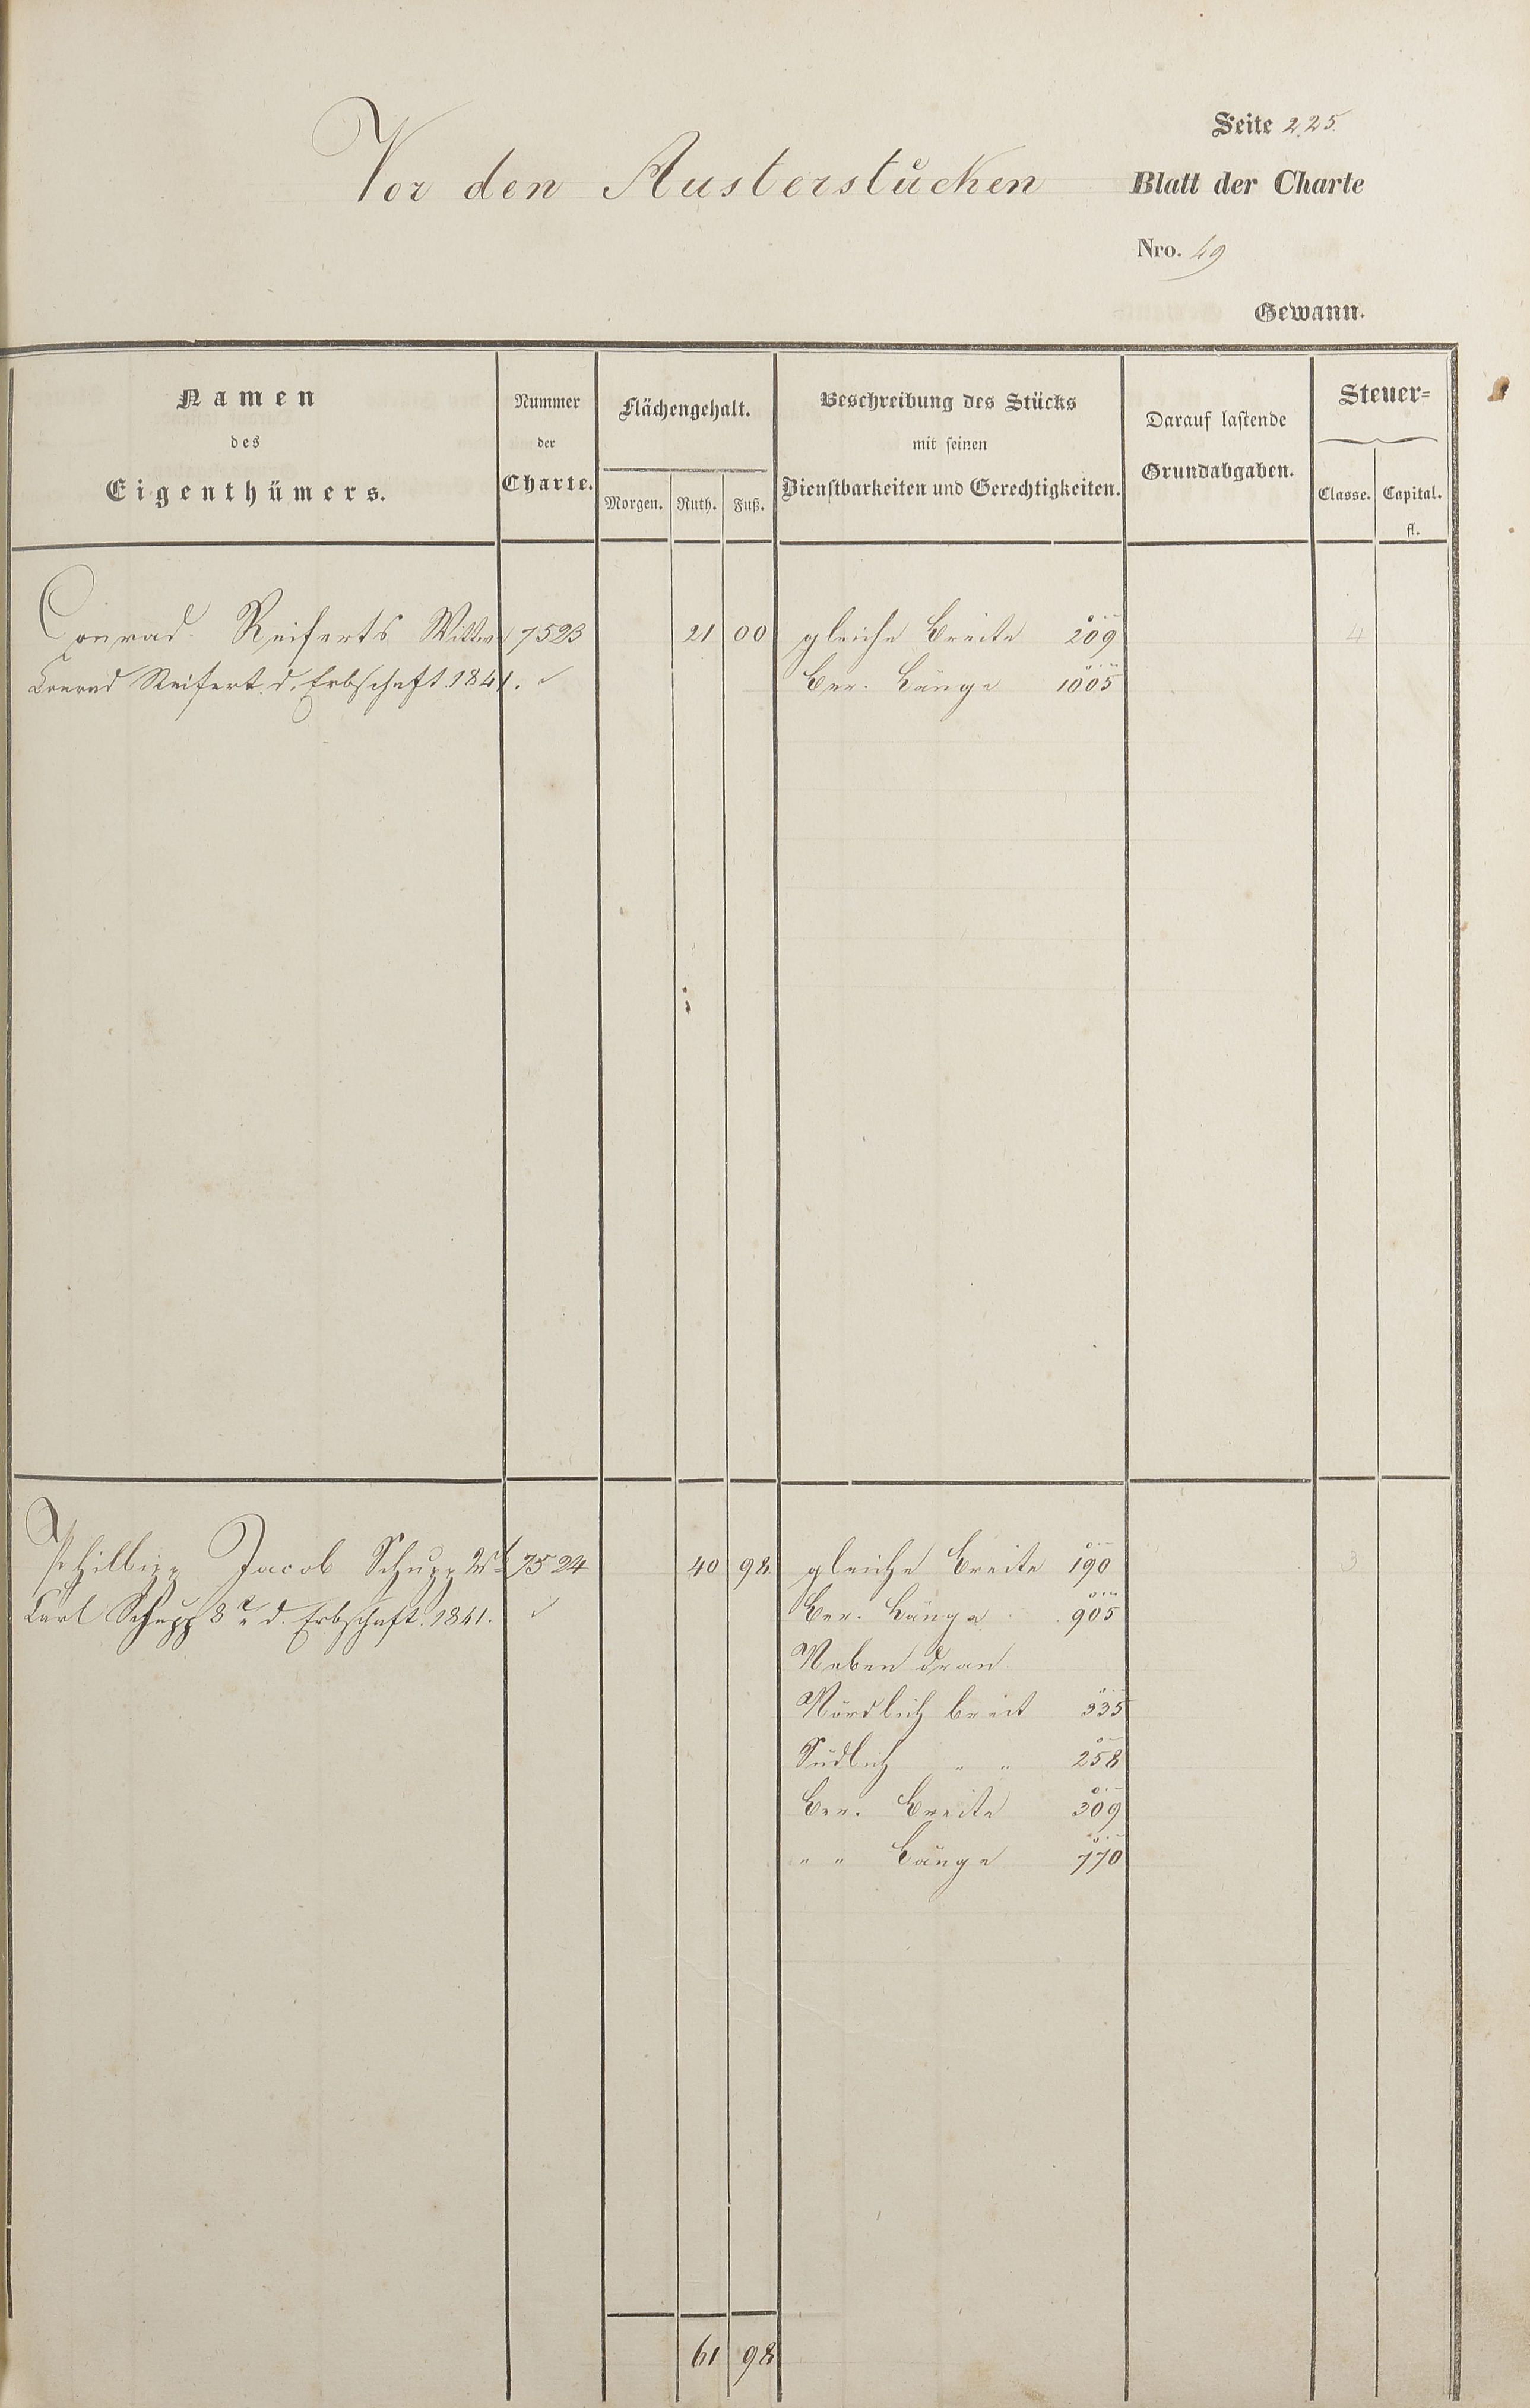 Seite 225.
Vor den Austerstücken
Blatt der Charte
Nro. 49
Gewann.
Namen
des
Eigenthümers.
Nummer
der
Charte.
Flächengehalt.
Morgen. Ruth. Fuß.
Beschreibung des Stücks
mit seinen
Dienstbarkeiten und Gerechtigkeiten.
Darauf lastende
Grundabgaben.
Steuer=
Classe. Capital.
fl.
Conrad Reiferts Wittwe 7523 21 00 gleiche Breite 209 4
Conrad Reifert d. Erbschaft. 1841. ✓ Ber. Länge 1005
Philipp Jacob Schupp 2t 7524 40 98 gleiche Breite 190 3
Carl Schupp 8r d. Erbschaft. 1841. ✓ Ber. Länge 905
Neben dran
Nördlich breit 335
Südlich " " 258
Ber. Breite 309
" " Länge 770
61 98